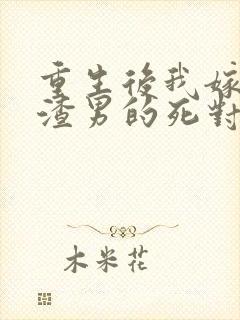 重生後我嫁
渣男的死對
木米花